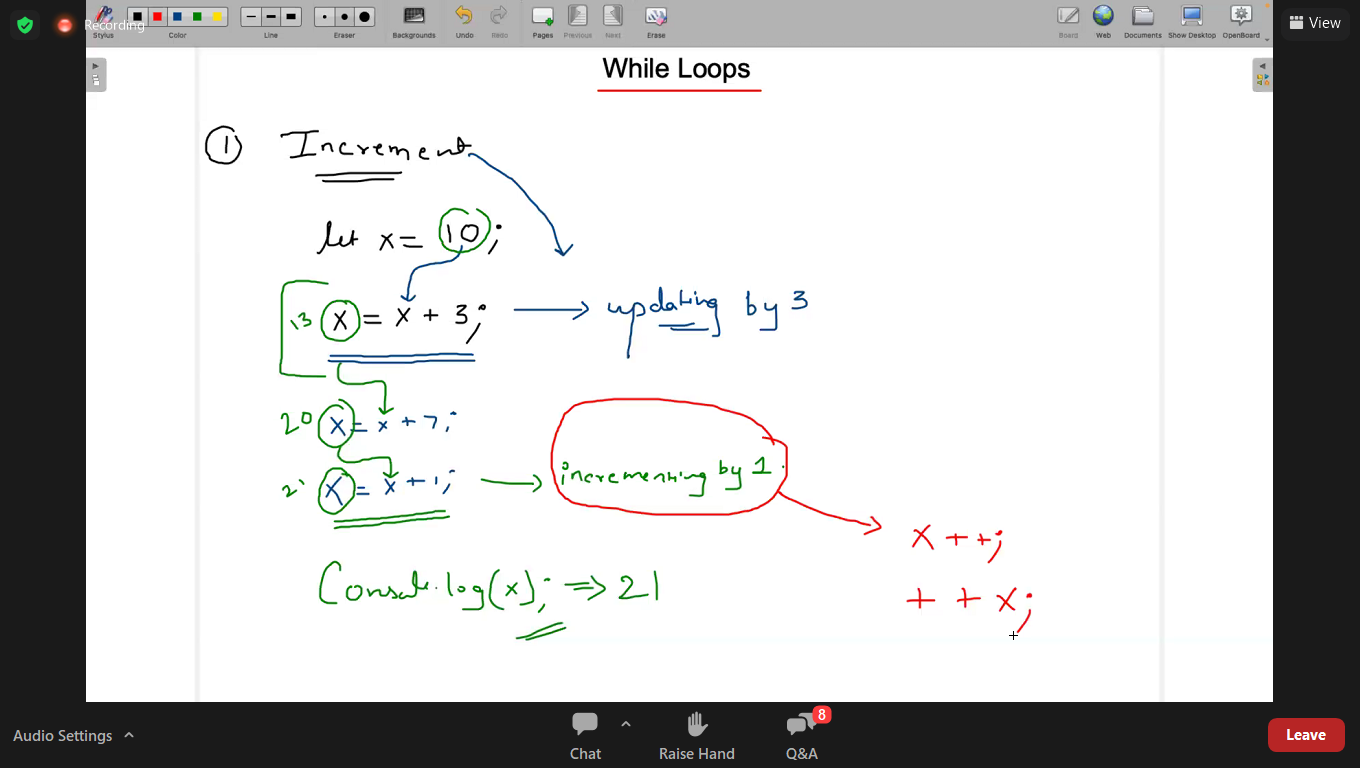 Recording
Stylus Color Line Eraser Backgrounds Undo Redo Pages Previous Next Erase Board Web Documents Show Desktop OpenBoard
View
While Loops
1 Increment
let x = 10;
13 x = x + 3; updating by 3
20 x = x + 7;
21 x = x + 1; incrementing by 1.
x + +;
+ + x;
Console.log(x); => 21
Audio Settings
Chat
Raise Hand
8
Q&A
Leave